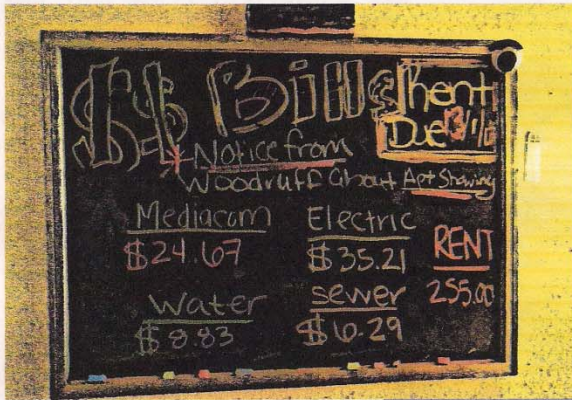 $$ Bills
Rent
Due
* Notice from
Woodruff about Apt Showing
Mediacom
$24.67
Electric
$35.21
RENT
255.00
Water
$8.83
sewer
$6.29